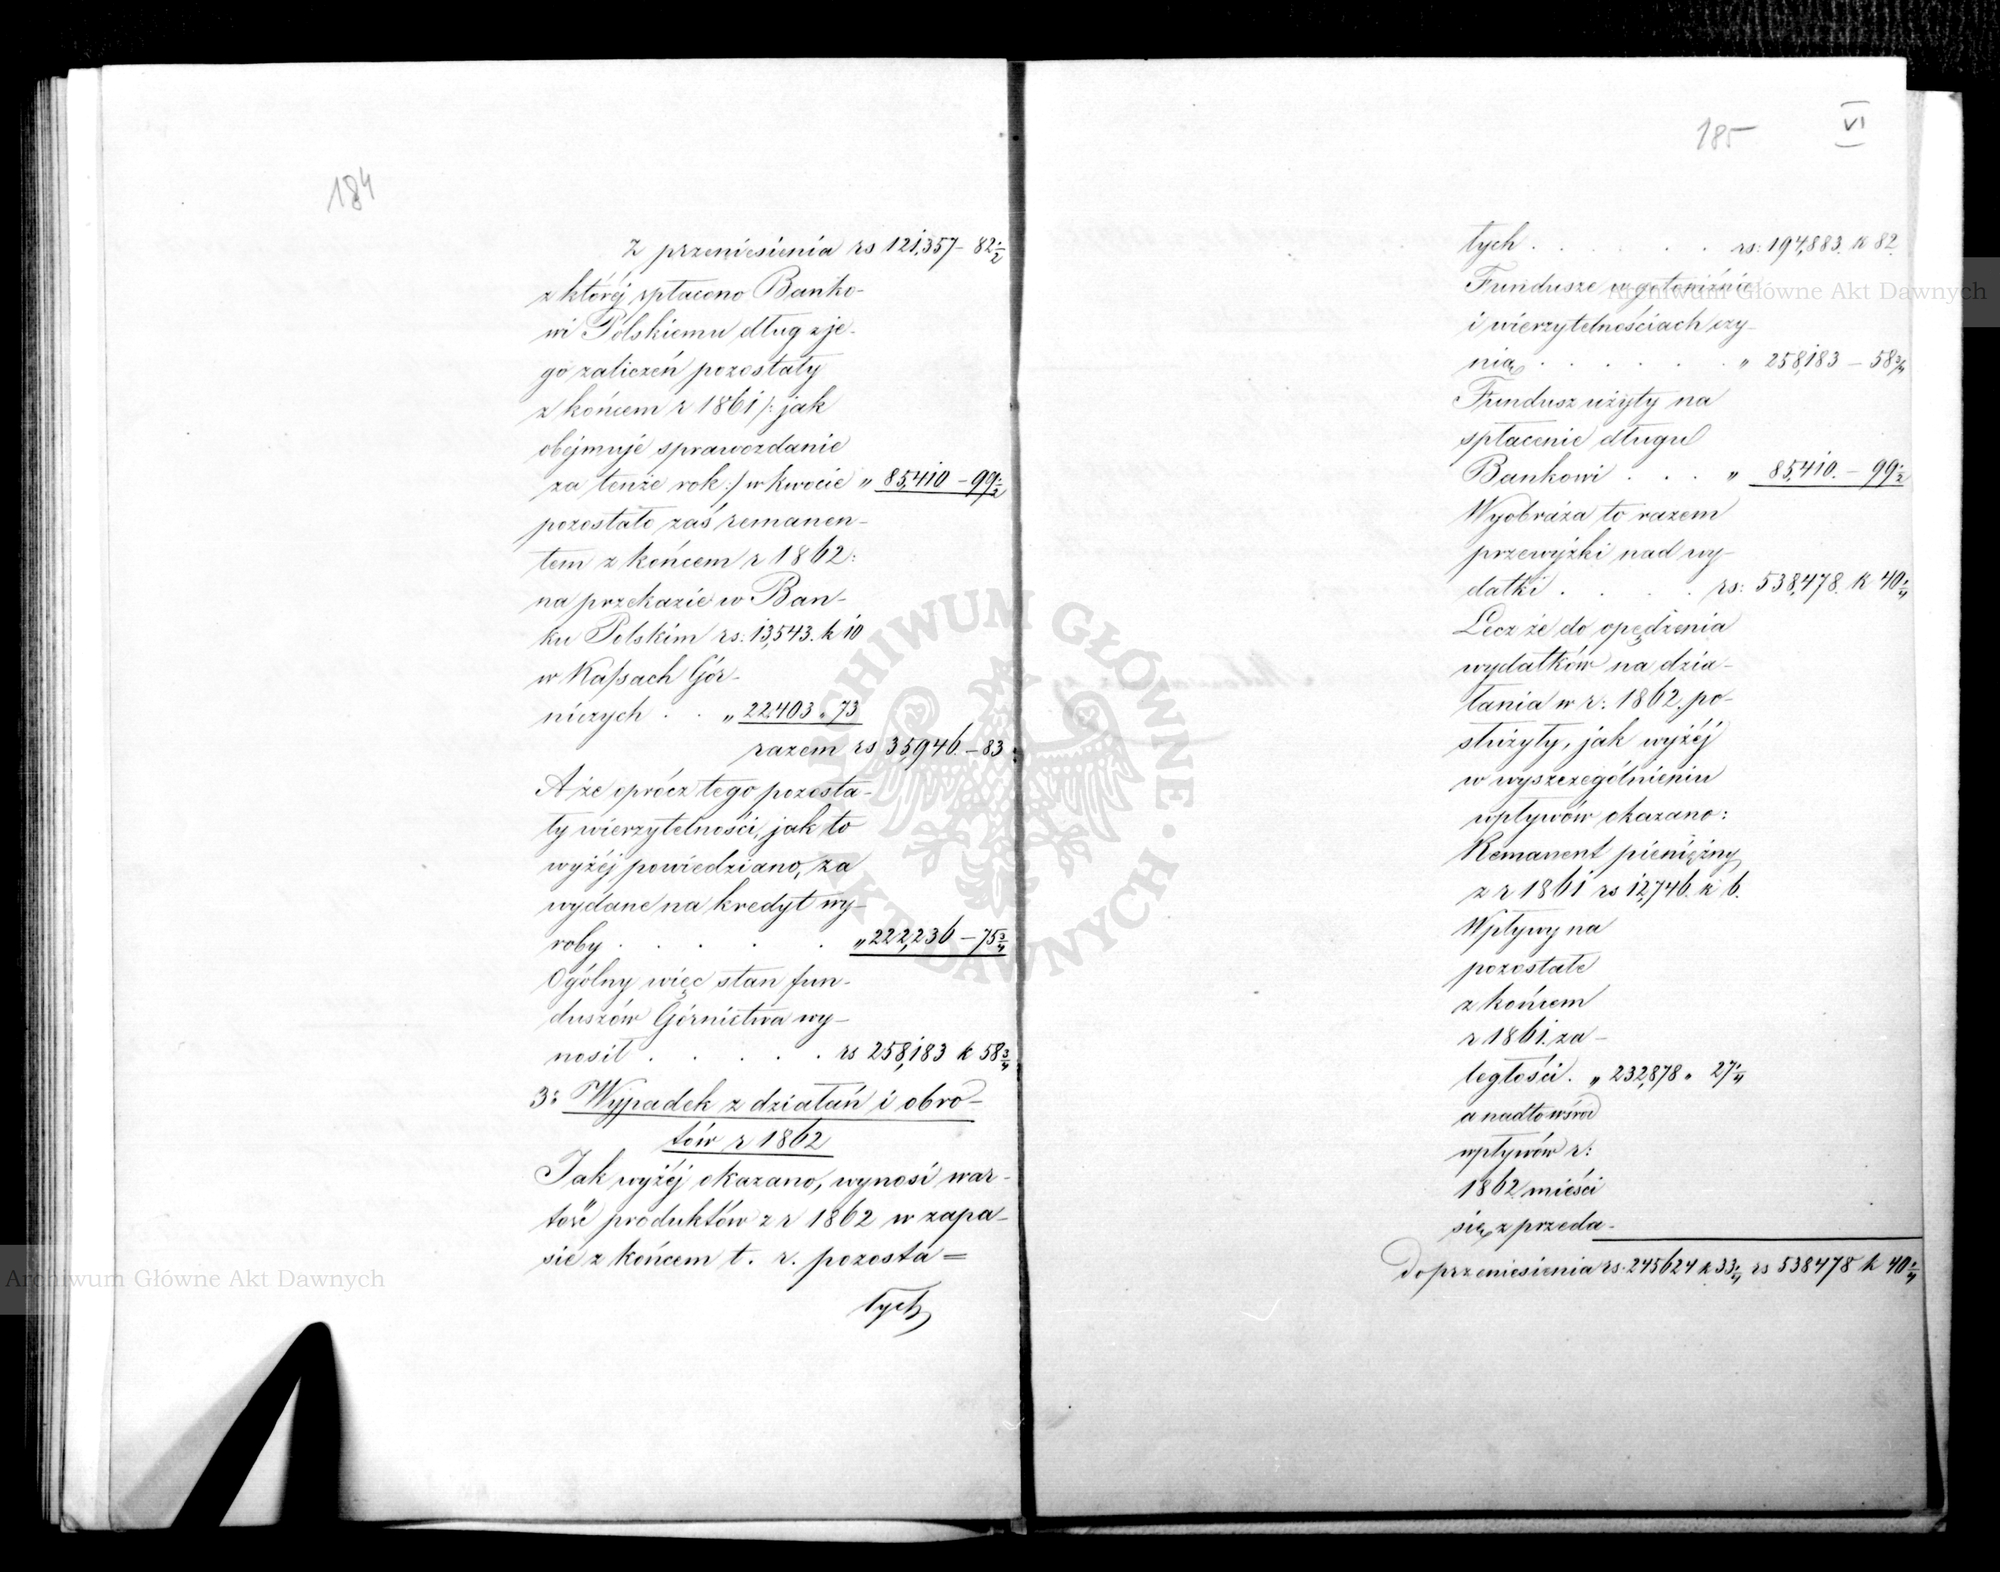 184
Z przeniesienia rs 121,357 – 82 1/2
z któréj spłacono Banko-
wi Polskiemu dług z je-
go zaliczeń pozostały
z końcem r 1861 /: jak
obejmuje sprawozdanie
za tenże rok :/ w kwocie „ 85,410 – 99 1/2
pozostało zaś remanen-
tem z końcem r 1862:
na przekazie w Ban-
ku Polskim rs: 13,543. k 10
w Kassach Gór-
niczych . . „ 22,403 „ 73
razem rs 35,946. – 83
A że oprócz tego pozosta-
ły wierzytelności, jak to
wyżéj powiedziano, za
wydane na kredyt wy-
roby . . . . . „ 222,236 – 75 3/4
Ogólny więc stan fun-
duszów Górnictwa wy-
nosił . . . . . rs 258,183 k 58 3/4
3: Wypadek z działań i obro-
tów r 1862
Jak wyżéj okazano, wynosi war-
tość produktów z r 1862 w zapa-
sie z końcem t. r. pozosta=
łych
185
VI
łych . . . . . . rs: 194,883. k 82.
Fundusze w gotowiźnie
i wierzytelnościach czy-
nią . . . . . . „ 258,183 – 58 3/4
Fundusz użyty na
spłacenie długu
Bankowi . . . „ 85,410. – 99 1/2
Wyobraża to razem
przewyżki nad wy-
datki . . . . rs: 538,478. k 40 1/4
Lecz że do opędzenia
wydatków na dzia-
łania w r: 1862, po-
służyły, jak wyżéj
w wyszczególnieniu
wpływów okazano:
Remanent pieniężny
z r 1861 rs 12,746. k 6.
Wpływy na
pozostałe
z końcem
r 1861. za-
ległości . „ 232,878 „ 27 1/4
a nadto wśród
wpływów r:
1862 mieści
się z przeda-
Do przeniesienia rs. 245624 k 33 1/4 rs 538478 k 40 1/4
Archiwum Główne Akt Dawnych
Archiwum Główne Akt Dawnych
ARCHIWUM GŁÓWNE AKT DAWNYCH